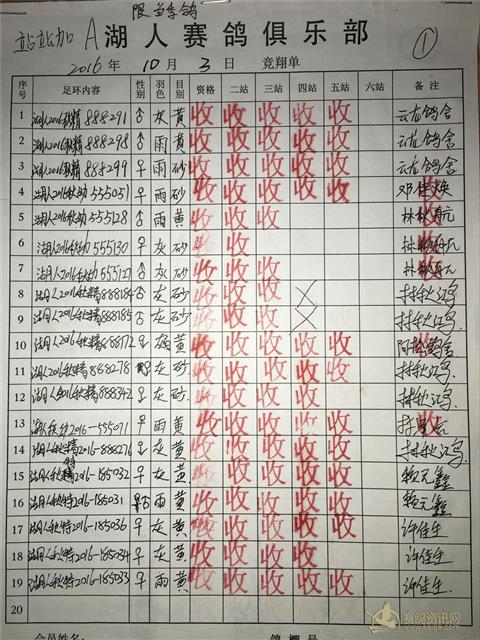 限当季鸽
站站加 A 湖人赛鸽俱乐部 ①
2016年 10月 3日 竞翔单
序号 足环内容 性别 羽色 目别 资格 二站 三站 四站 五站 六站 备注
1 湖人2016秋精888291 ♂ 灰 黄 收 收 收 收 收 云龙鸽舍
2 湖人2016秋精888298 ♂ 雨 黄 收 收 收 收 收 云龙鸽舍
3 湖人2016秋精888299 ♀ 雨 砂 收 收 收 收 收 云龙鸽舍
4 湖人2016秋幼555051 ♀ 雨 砂 收 收 收 收 收 邓佳焕
5 湖人2016秋幼555128 ♂ 雨 黄 收 收 收
6 湖人2016秋幼555130 ♀ 灰 砂 收 收
7 湖人2016秋幼555127 ♂ 灰 砂 收 收 收
8 湖人2016秋精888184 ♂ 灰 砂 收 收 收
9 湖人2016秋精888185 ♂ 灰 砂 收 收 收
10 湖人2016秋精888172 ♀ 黄 收 收 收 收 收
11 湖人2016秋精888278 灰 砂 收 收 收 收 收
12 湖人2016秋精888342 ♀ 灰 砂 收 收 收 收
13 2016-555071 ♀ 雨 黄 收 收 收 收 收
14 湖人秋精2016-888276 ♀ 灰 黄 收 收 收 收 收
15 湖人秋特2016-185032 ♀ 灰 黄 收 收 收 收 收 赖元鑫
16 湖人秋特2016-185031 雨 黄 收 收 收 收 收 赖元鑫
17 湖人秋特2016-185036 ♀ 灰 黄 收 收 收 收 收 许佳生
18 湖人秋特2016-185034 ♀ 灰 黄 收 收 收 收 许佳生
19 湖人秋特2016-185033 ♀ 雨 黄 收 收 收 收 收 许佳生
20
会员姓名: 鸽棚号
赛鸽资讯网